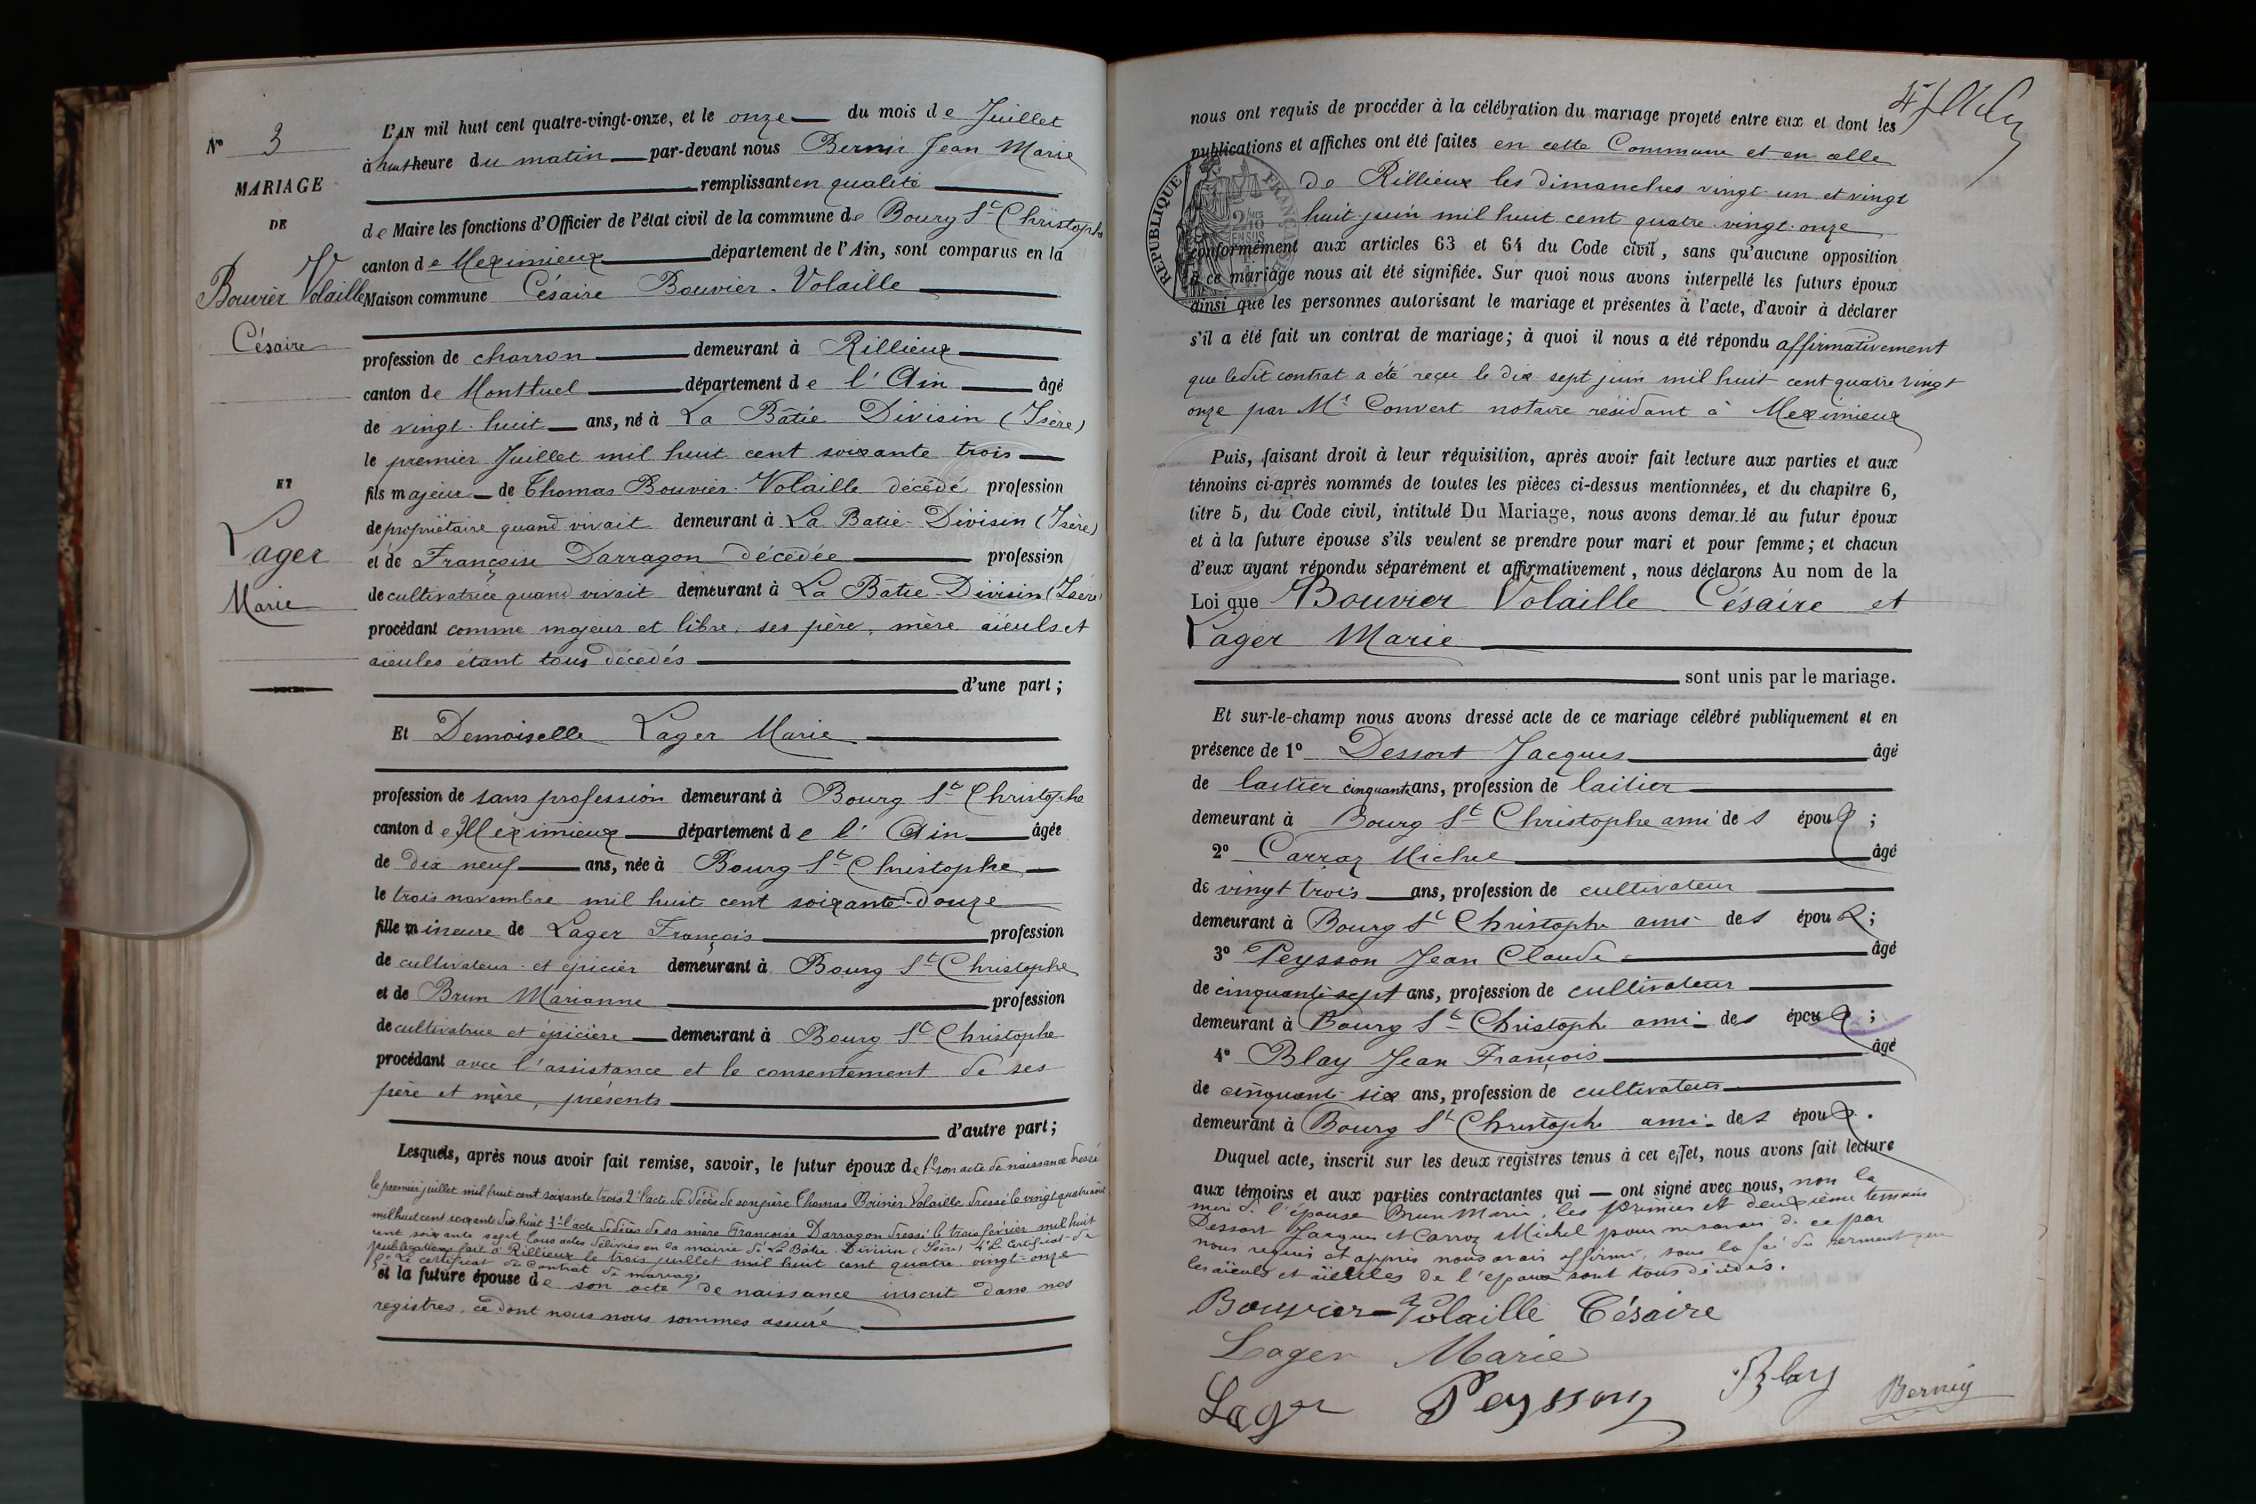 N° 3
MARIAGE
DE
Bouvier Volaille
Césaire
ET
Lager
Marie
L'AN mil huit cent quatre-vingt-onze, et le onze du mois de Juillet
à huit heure du matin par-devant nous Bernin Jean Marie
remplissant en qualité
de Maire les fonctions d'Officier de l'état civil de la commune de Bourg St Christophe
canton de Meximieux département de l'Ain, sont comparus en la
Maison commune Césaire Bouvier-Volaille
profession de charron demeurant à Rillieux
canton de Montluel département de l'Ain âgé
de vingt-huit ans, né à La Bâtie Divisin (Isère)
le premier Juillet mil huit cent soixante trois
fils majeur de Thomas Bouvier-Volaille décédé profession
de propriétaire quand vivait demeurant à La Batie-Divisin (Isère)
et de Françoise Darragon décédée profession
de cultivatrice quand vivait demeurant à La Bâtie-Divisin (Isère)
procédant comme majeur et libre, ses père, mère aïeuls et
aïeules étant tous décédés
d'une part ;
Et Demoiselle Lager Marie
profession de sans profession demeurant à Bourg St Christophe
canton de Meximieux département de l'Ain âgée
de dix neuf ans, née à Bourg St Christophe
le trois novembre mil huit cent soixante-douze
fille mineure de Lager François profession
de cultivateur et épicier demeurant à Bourg St Christophe
et de Brun Marianne profession
de cultivatrice et épicière demeurant à Bourg St Christophe
procédant avec l'assistance et le consentement de ses
père et mère, présents
d'autre part ;
Lesquels, après nous avoir fait remise, savoir, le futur époux de 1° son acte de naissance dressé
le premier juillet mil huit cent soixante trois 2° l'acte de décès de son père Thomas Bouvier Volaille dressé le vingt quatre août
mil huit cent soixante dix huit 3° l'acte de décès de sa mère Françoise Darragon dressé le trois février mil huit
cent soixante sept tous actes délivrés en la mairie de La Bâtie-Divisin (Isère) 4° Le Certificat de
publications fait à Rillieux le trois juillet mil huit cent quatre-vingt-onze
5° Le certificat de Contrat de mariage
et la future épouse de son acte de naissance inscrit dans nos
registres, ce dont nous nous sommes assuré
nous ont requis de procéder à la célébration du mariage projeté entre eux et dont les
publications et affiches ont été faites en cette Commune et en celle
de Rillieux les dimanches vingt-un et vingt
huit juin mil huit cent quatre-vingt-onze
RÉPUBLIQUE FRANÇAISE
conformément aux articles 63 et 64 du Code civil, sans qu'aucune opposition
à ce mariage nous ait été signifiée. Sur quoi nous avons interpellé les futurs époux
ainsi que les personnes autorisant le mariage et présentes à l'acte, d'avoir à déclarer
s'il a été fait un contrat de mariage ; à quoi il nous a été répondu affirmativement
que ledit contrat a été reçu le dix sept juin mil huit cent quatre vingt
onze par Me Convert notaire résidant à Meximieux
Puis, faisant droit à leur réquisition, après avoir fait lecture aux parties et aux
témoins ci-après nommés de toutes les pièces ci-dessus mentionnées, et du chapitre 6,
titre 5, du Code civil, intitulé Du Mariage, nous avons demandé au futur époux
et à la future épouse s'ils veulent se prendre pour mari et pour femme ; et chacun
d'eux ayant répondu séparément et affirmativement, nous déclarons Au nom de la
Loi que Bouvier Volaille Césaire et
Lager Marie
sont unis par le mariage.
Et sur-le-champ nous avons dressé acte de ce mariage célébré publiquement et en
présence de 1° Dessort Jacques âgé
de laitier cinquante ans, profession de laitier
demeurant à Bourg St Christophe ami des époux ;
2° Carroz Michel âgé
de vingt trois ans, profession de cultivateur
demeurant à Bourg St Christophe ami des époux ;
3° Peysson Jean Claude âgé
de cinquante sept ans, profession de cultivateur
demeurant à Bourg St Christophe ami des époux ;
4° Blay Jean François âgé
de cinquante-six ans, profession de cultivateur
demeurant à Bourg St Christophe ami des époux.
Duquel acte, inscrit sur les deux registres tenus à cet effet, nous avons fait lecture
aux témoins et aux parties contractantes qui ont signé avec nous, non la
mère de l'épouse Brun Marie, les premier et deuxième témoins
Dessort Jacques et Carroz Michel pour ne savoir de ce par
nous requis et appris nous avoir affirmé, sous la foi du serment que
les aïeuls et aïeules de l'époux sont tous décédés.
Bouvier-Volaille Césaire
Lager Marie
Lager Peysson Blay Bernin